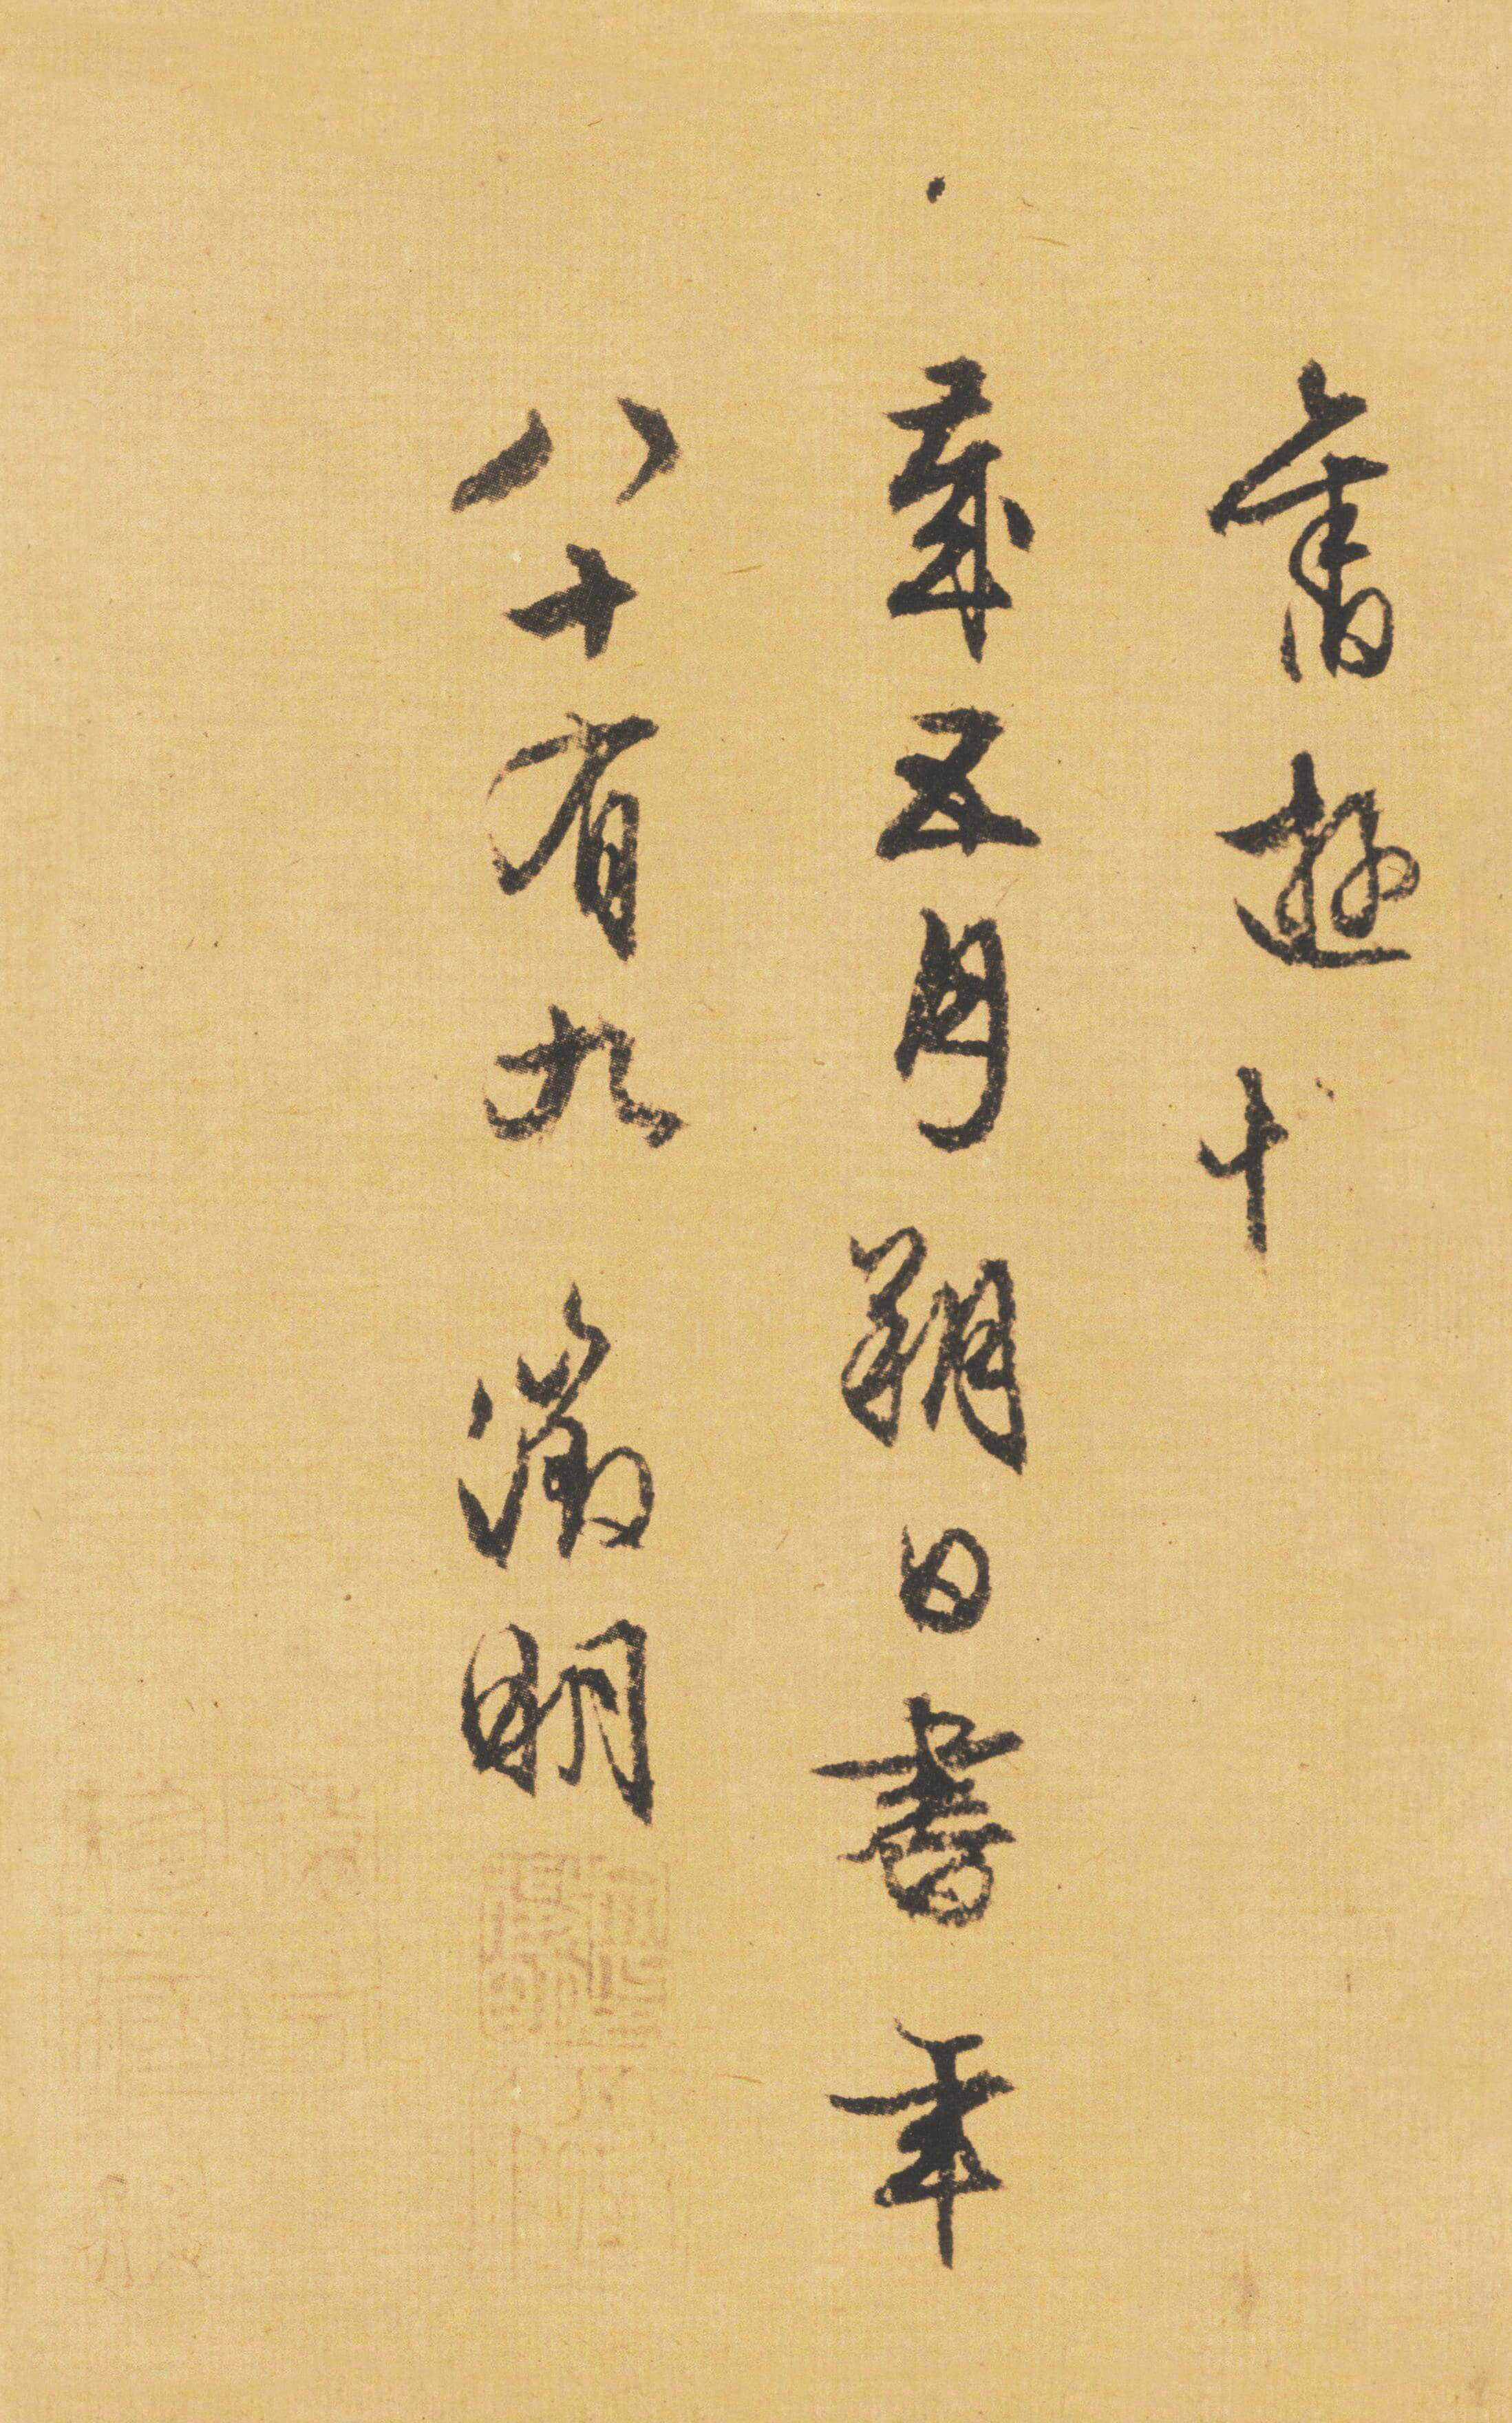 舊遊十
歲五月朔日書年
八十有九 徵明